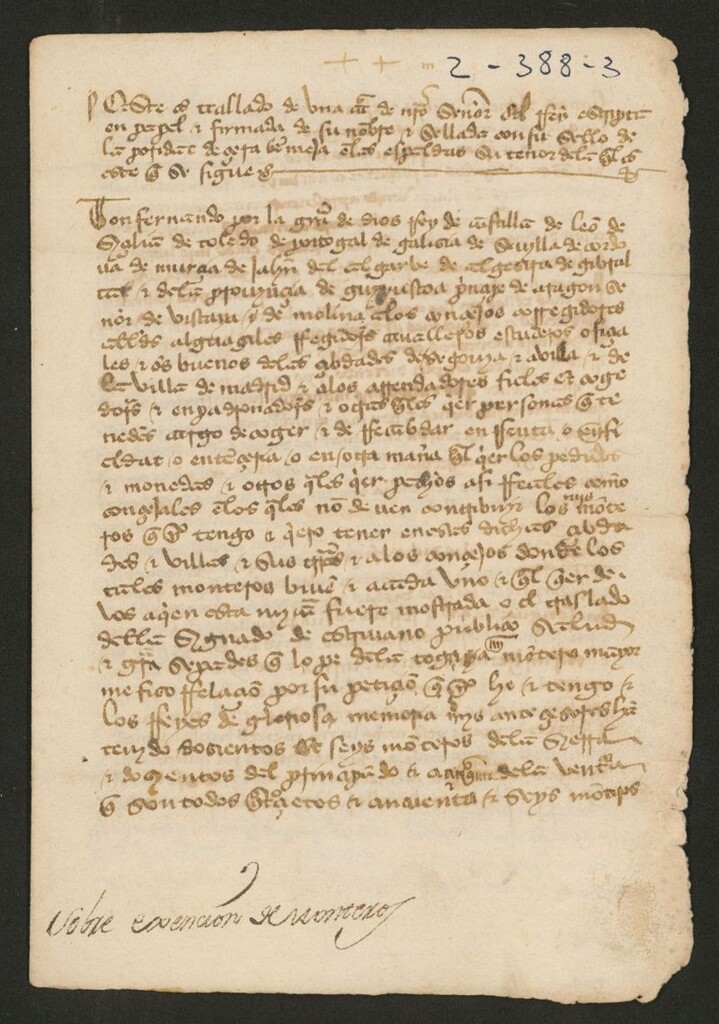 2 - 388 - 3
Este es traslado de una cta de nro Señor el Rey escripta
en papel & firmada de su nobre & sellada con su sello de
la poridat de çera bermeja en las espaldas su tenor dela ql es
este q se sigue
Don fernando por la gra de dios Rey de castilla de leo de
de toledo de portogal de galisia de Sevylla de cordo
va de murçia de Jahn del algarbe de algesira de gibral
tar & dela provynçia de guypuscoa prinçipe de aragon Se
ñor de viscaya & de molina A los conçejos corregidores
alldes alguasiles Regidores cavalleros escuderos ofiçia
les & oes buenos delas çibdades de segovya & avila & de
la villa de madrid & a los arrendadores fieles & coge
dores & enpadronadores & otras qles qer personas q te
nedes cargo de coger & de Recabdar en Renta o en fi
eldat o en terçeria o en otra manera ql qer los pedidos
& monedas & otros qles qer pechos asi Reales como
conçejales en los qles no deven contribuyr los mys mote
ros q yo tengo & qero tener en esas dichas çibda
des & villas & sus trras & a los conçejos donde los
tales monteros biven & a cada uno & ql qer de
vos a qien esta mi cta fuere mostrada o el traslado
della sygnado de escrivano publico Salud
& graçia Sepades q lope dela mi montero mayor
me fiso Relaçio por su petiçio q yo he & tengo &
los Reyes de gloriosa memoria mys anteçesores han
tenydo dosientos & seys monteros dela
& dosientos del prinçipado & dela
q son todos & çincuenta & seys monteros
Sobre exencion de Monteros